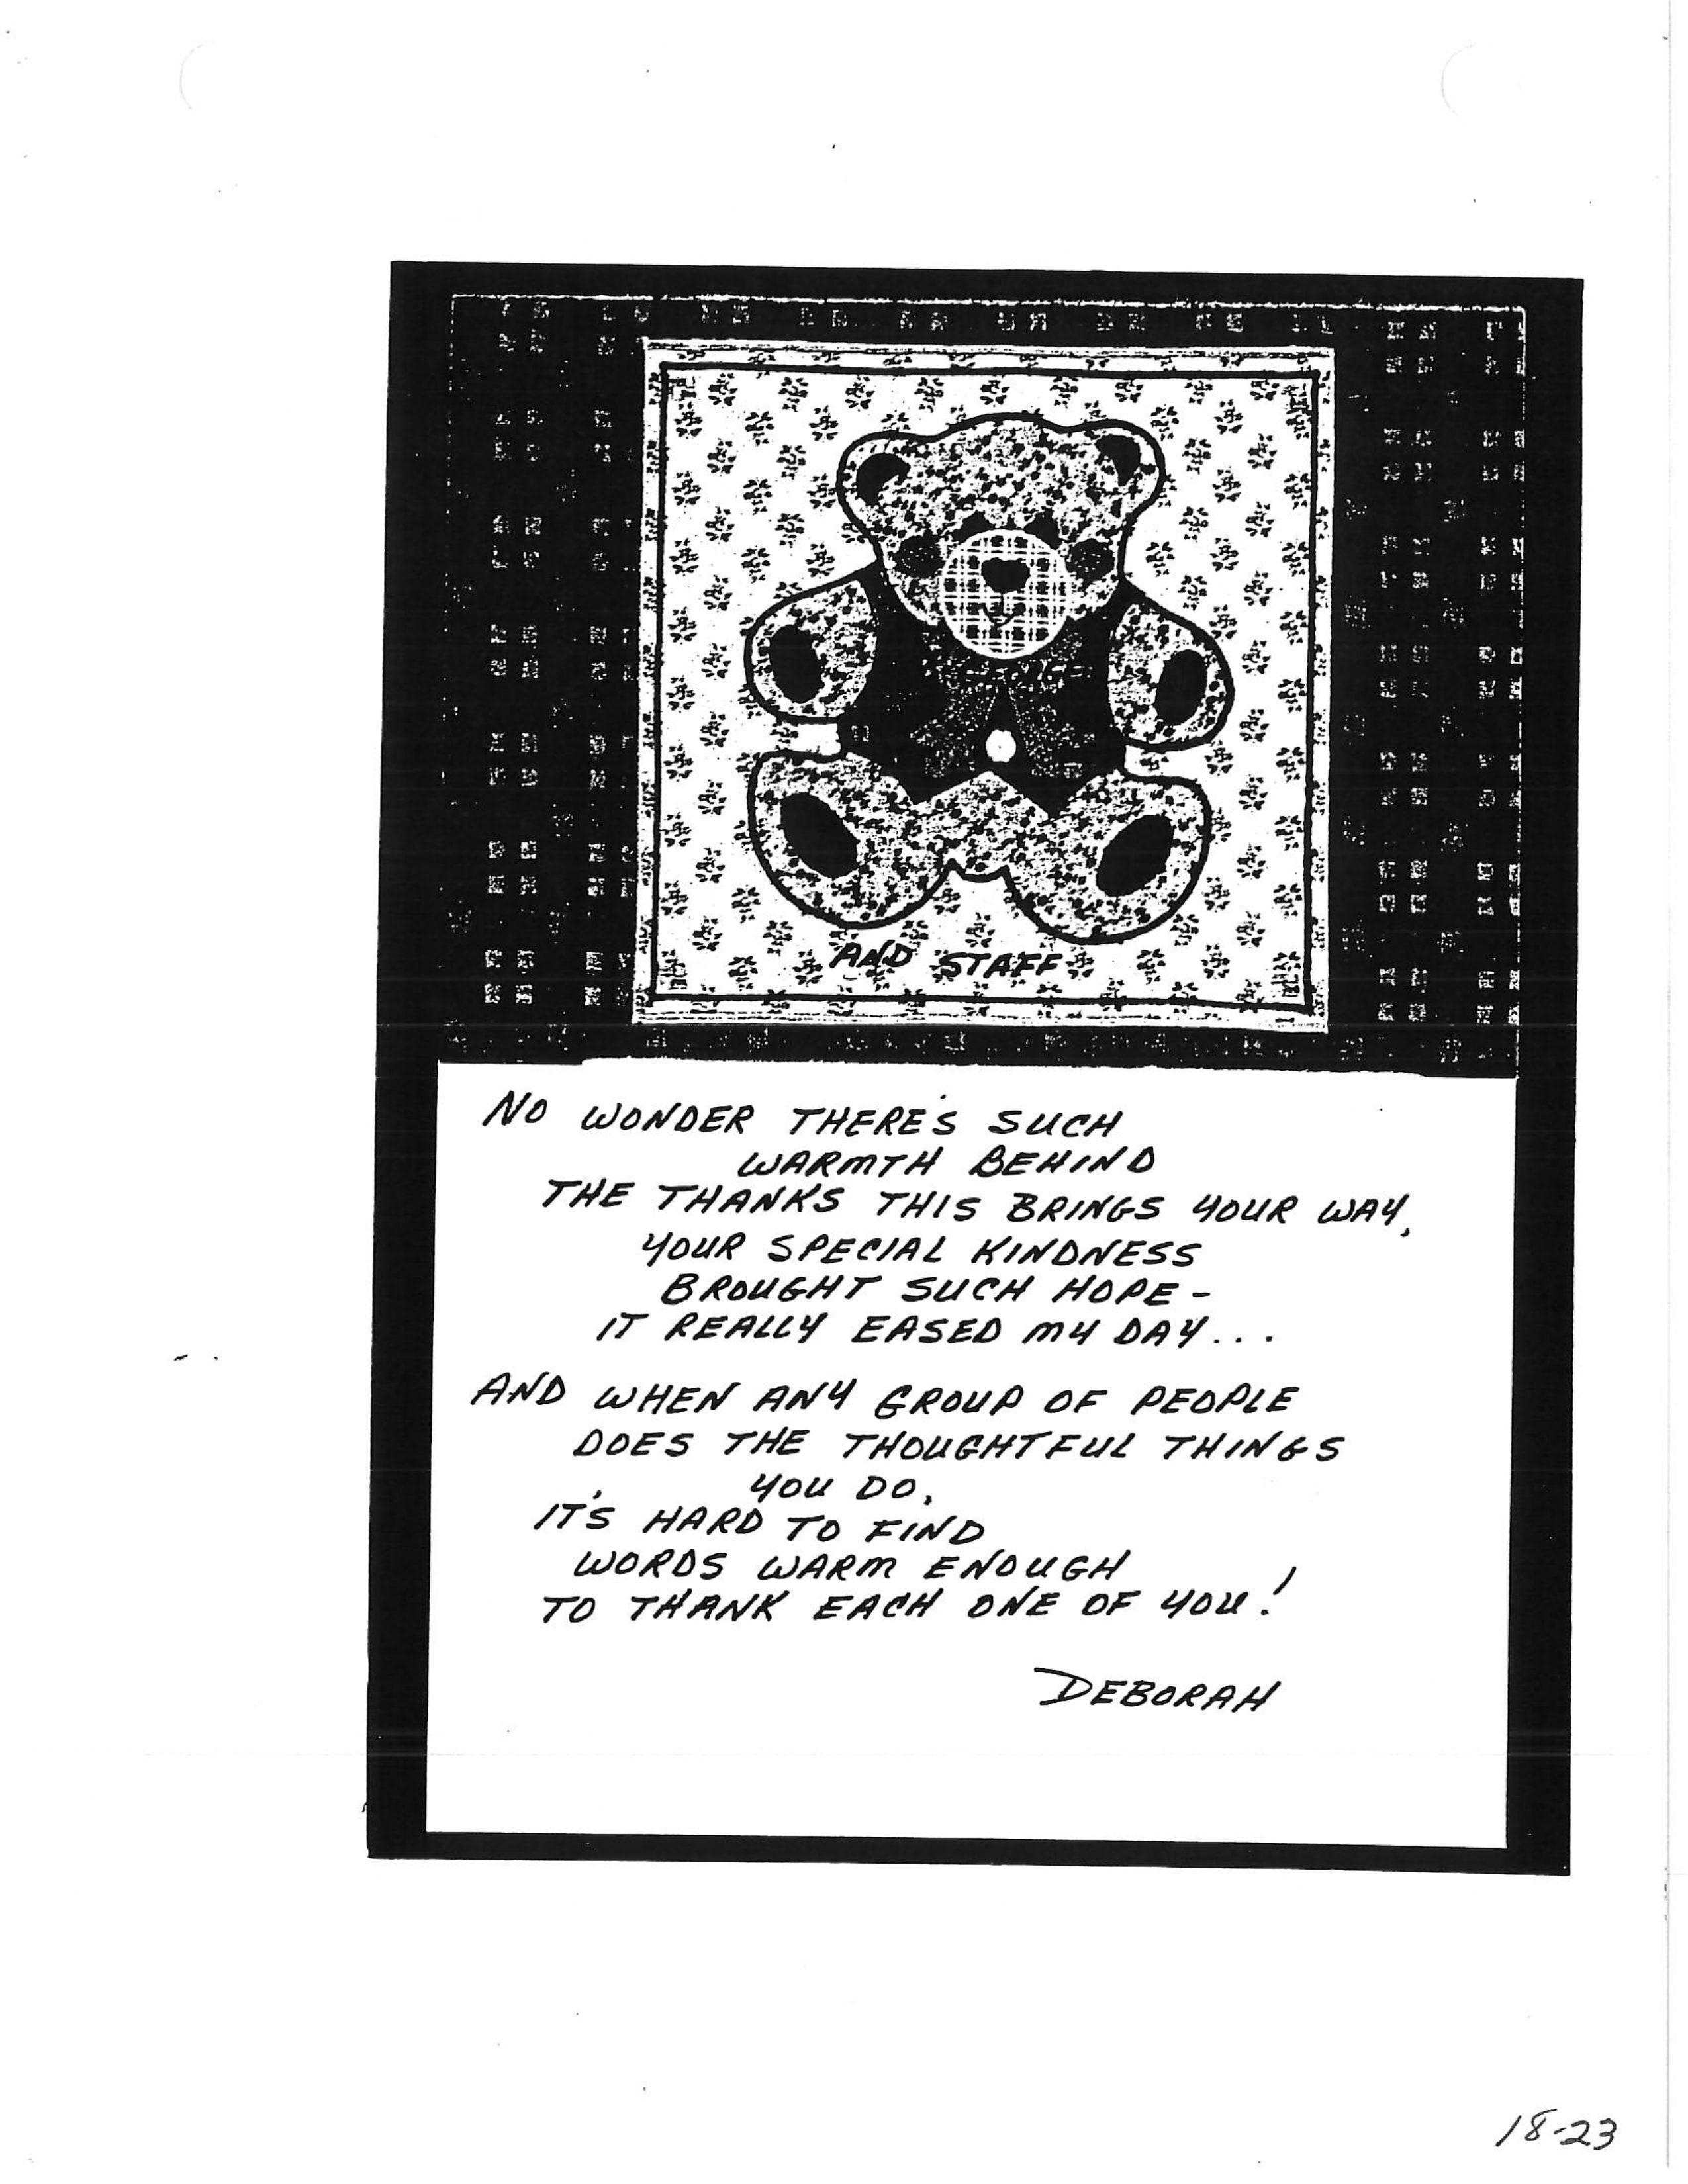 AND STAFF
NO WONDER THERE'S SUCH
WARMTH BEHIND
THE THANKS THIS BRINGS YOUR WAY,
YOUR SPECIAL KINDNESS
BROUGHT SUCH HOPE -
IT REALLY EASED MY DAY...
AND WHEN ANY GROUP OF PEOPLE
DOES THE THOUGHTFUL THINGS
YOU DO,
IT'S HARD TO FIND
WORDS WARM ENOUGH
TO THANK EACH ONE OF YOU!
DEBORAH
18-23